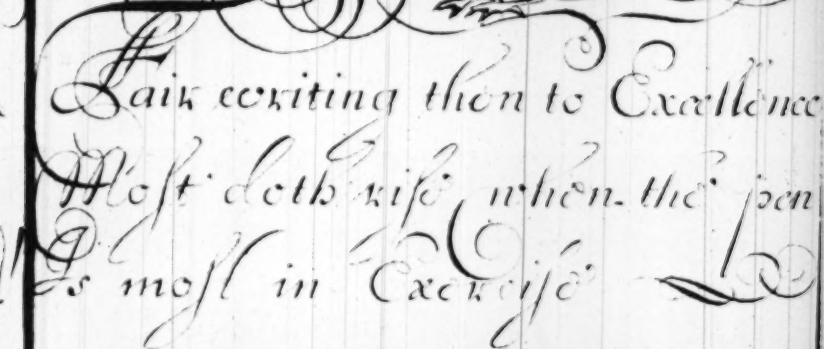 Fair writing then to Excellence
Moſt doth riſe when the pen
Is moſt in Exerciſe